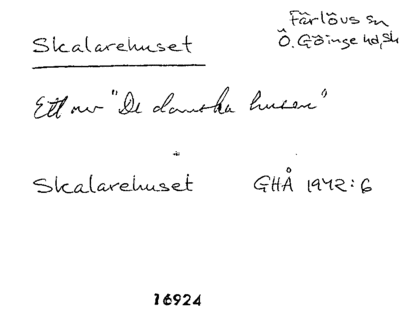 Skalarehuset
Färlövs sn
Ö. Göinge hd, Sk
Ett av "De danska husen"
Skalarehuset GHÅ 1942:6
16924